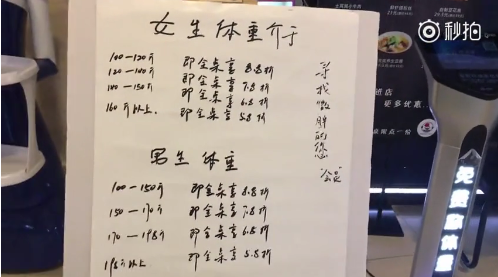 女生体重介于
100-120斤 即全桌享 8.8折
120-140斤 即全桌享 7.8折
140-150斤 即全桌享 6.8折
160斤以上. 即全桌享 5.8折
男生体重
100-150斤 即全桌享 8.8折
150-170斤 即全桌享 7.8折
170-195斤 即全桌享 6.8折
195斤以上 即全桌享 5.8折
寻找微胖的您
秒拍
免费称体重